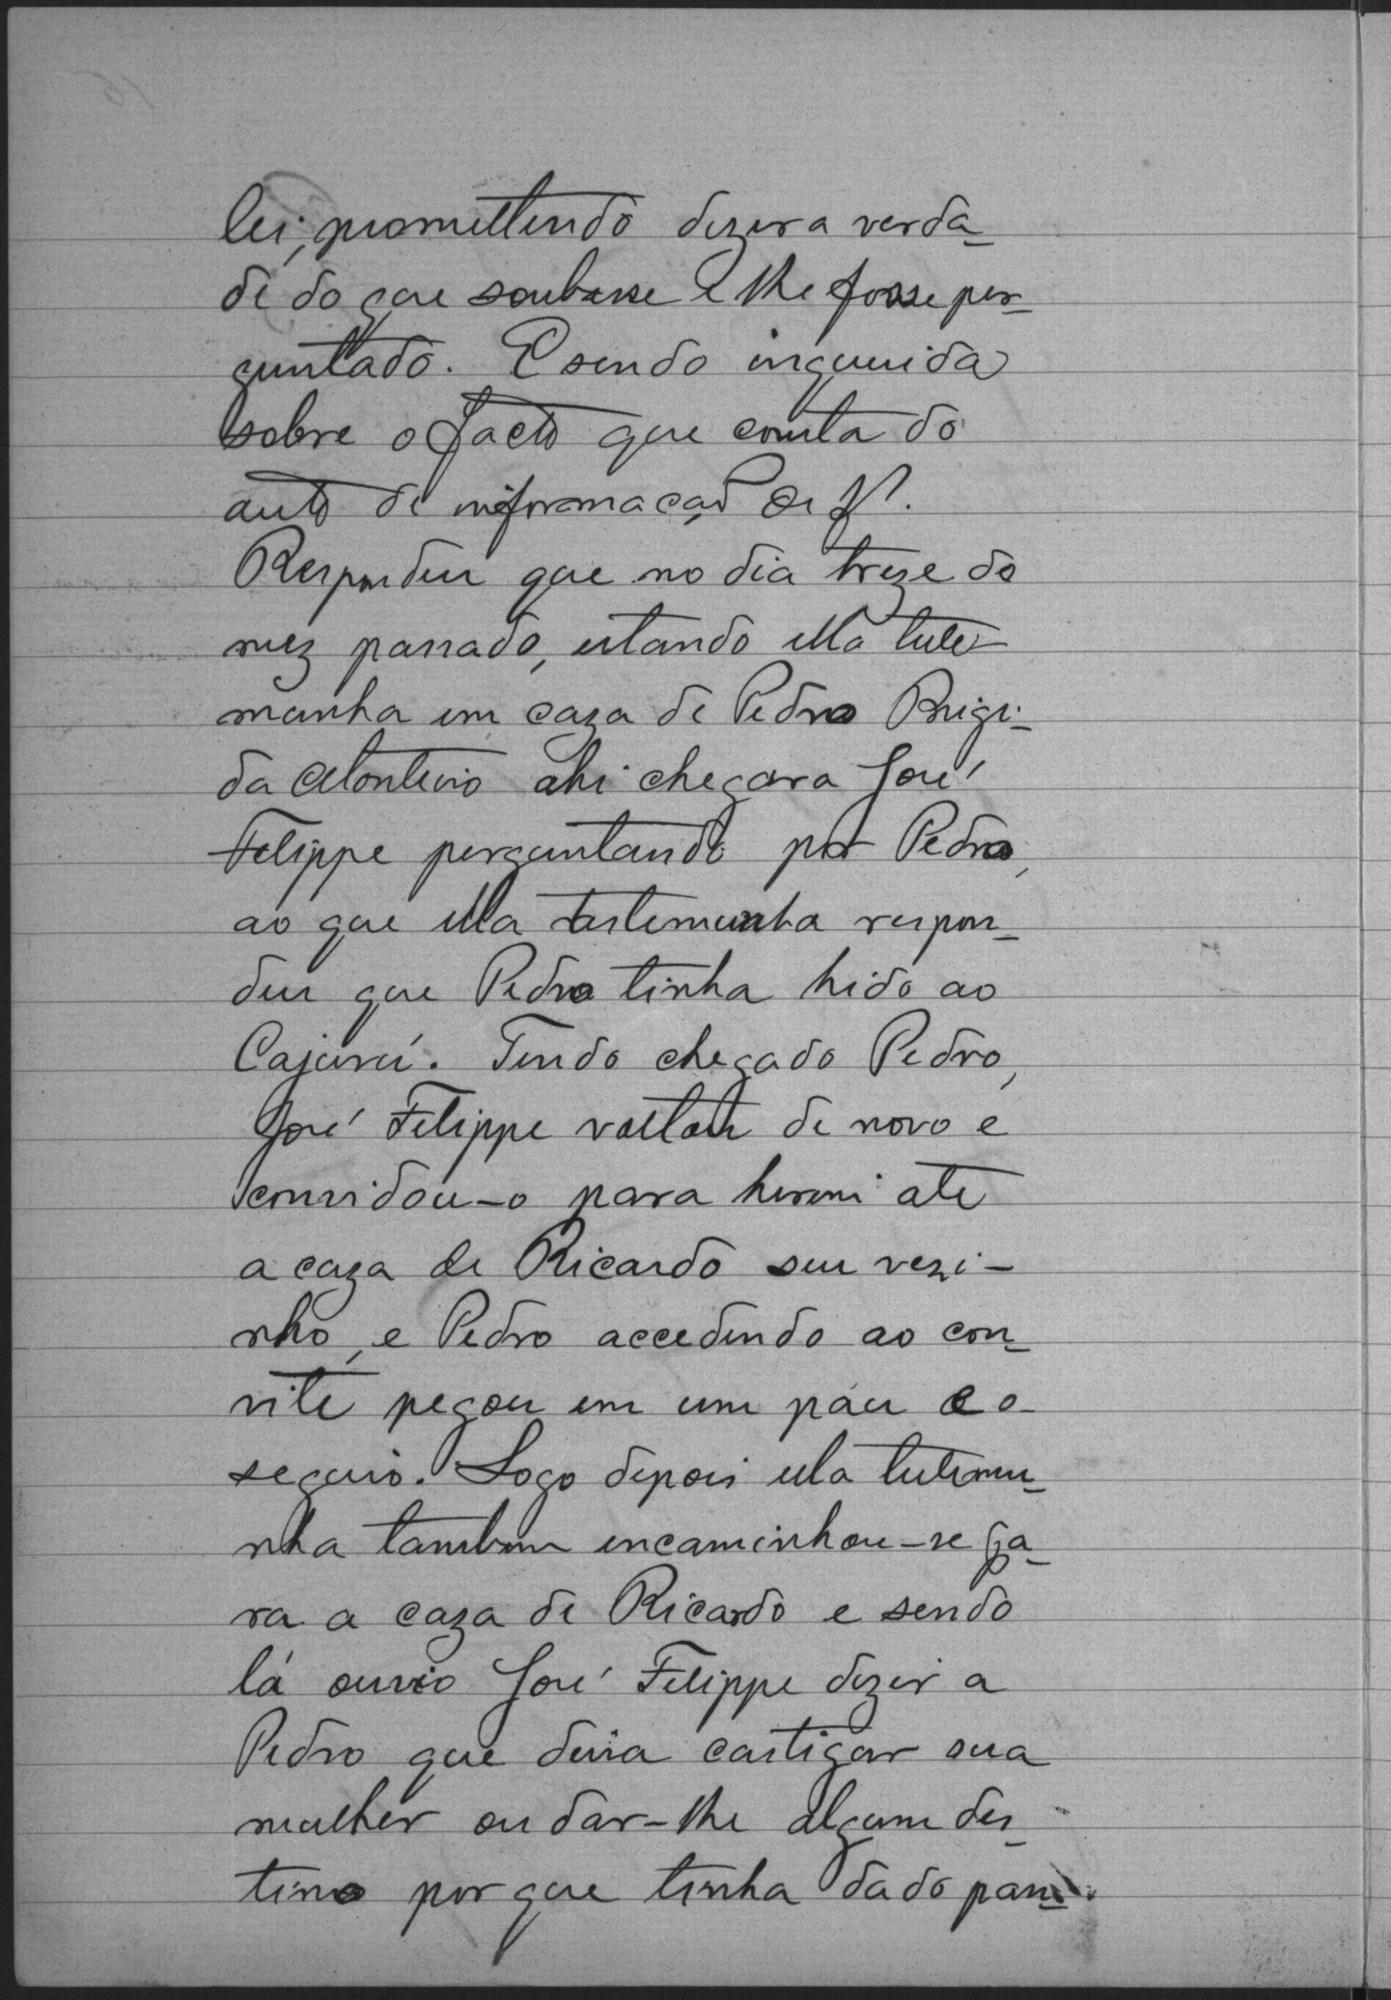 lei, promettendo dizer a verda-
de do que soubesse e lhe fosse per-
guntado. E sendo inquerida
sobre o facto que consta do
auto de informação de f.
Respondeu que no dia treze do
mez passado, estando ella teste-
munha em caza de Pedro Brigi-
da Monteiro ahi chegara José
Felippe perguntando por Pedro,
ao que ella testemunha respon-
deu que Pedro tinha hido ao
Cajurú. Tendo chegado Pedro,
José Felippe voltou de novo e
convidou-o para herem até
a caza de Ricardo seu vezi-
nho, e Pedro accedendo ao con-
vite pegou em um páu e o
seguio. Logo depois ella testemu-
nha tambem encaminhou-se pa-
ra a caza de Ricardo e sendo
lá ouvio José Felippe dizer a
Pedro que devia castigar sua
mulher ou dar-lhe algum des-
tino por que tinha dado par-